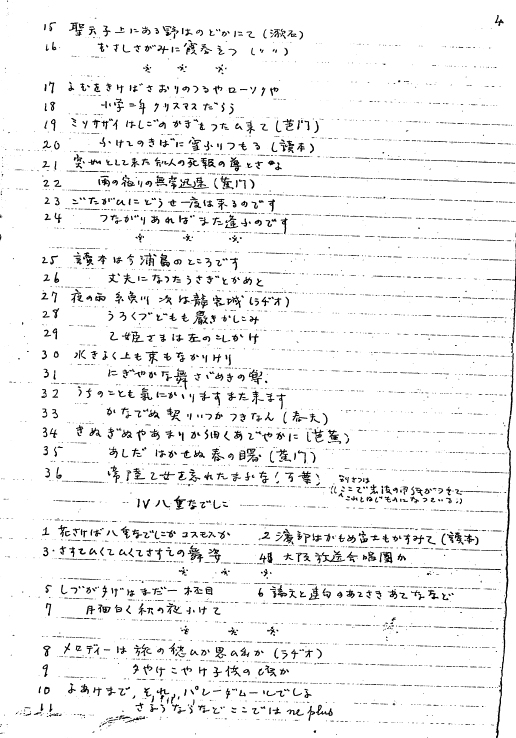 4
15 聖天子上にある野はのどかにて (漱石)
16 むさしさがみに霞春立つ (〃〃)
※ ※ ※
17 よむをきけばさおりのつるやローソクや
18 小学二年クリスマスだらう
19 ミソサザイはしごのかぎをつたひ来て (芭門)
20 ふけてのきばに雪ふりつもる (読本)
21 突如として来た知人の死報の
22 雨の宿りの無常迅速 (蕉門)
23 ごたがひにどうせ一度は来るのです
24 つながりあればまた逢ふのです
※ ※ ※
25 読本は今浦島のところです
26 丈夫になつたうさぎとかめと
27 夜の雨糸魚川 次は龍宮城 (ラヂオ)
28 うろくづどもも厳きかしこみ
29 乙姫さまは左のこしかけ
30 水きよく上も束もなかりけり
31 にぎやかな舞さざめきの楽.
32 うちのことも気にかゝりますまた来ます
33 かなでぬ契りいつかつきなん (春夫)
34 きぬぎぬやあまりか細くあでやかに (芭蕉)
35 あしだはかせぬ春の曙 (蕉門)
36 常陸乙女を忘れたまふな! (万葉)
IV 八重なでしこ
1 花さけば八重なでしこかコスモスか
2 濱部はかもめ富士もかすみて (読本)
3 さすてひくてひくてさすその舞姿
4 大阪放送会唱團か
※ ※ ※
5 しづかあげはまだ一極目
6 論文と連句のあてさきあてななど
7 月細白く秋の夜ふけて
※ ※ ※
8 メロディーは旅の愁ひか思ひ出か (ラヂオ)
9 夕やけこやけ子供の頃か
10 よあけまで、それ、パレーダムールでしよ
11 さようならなどここではne plus